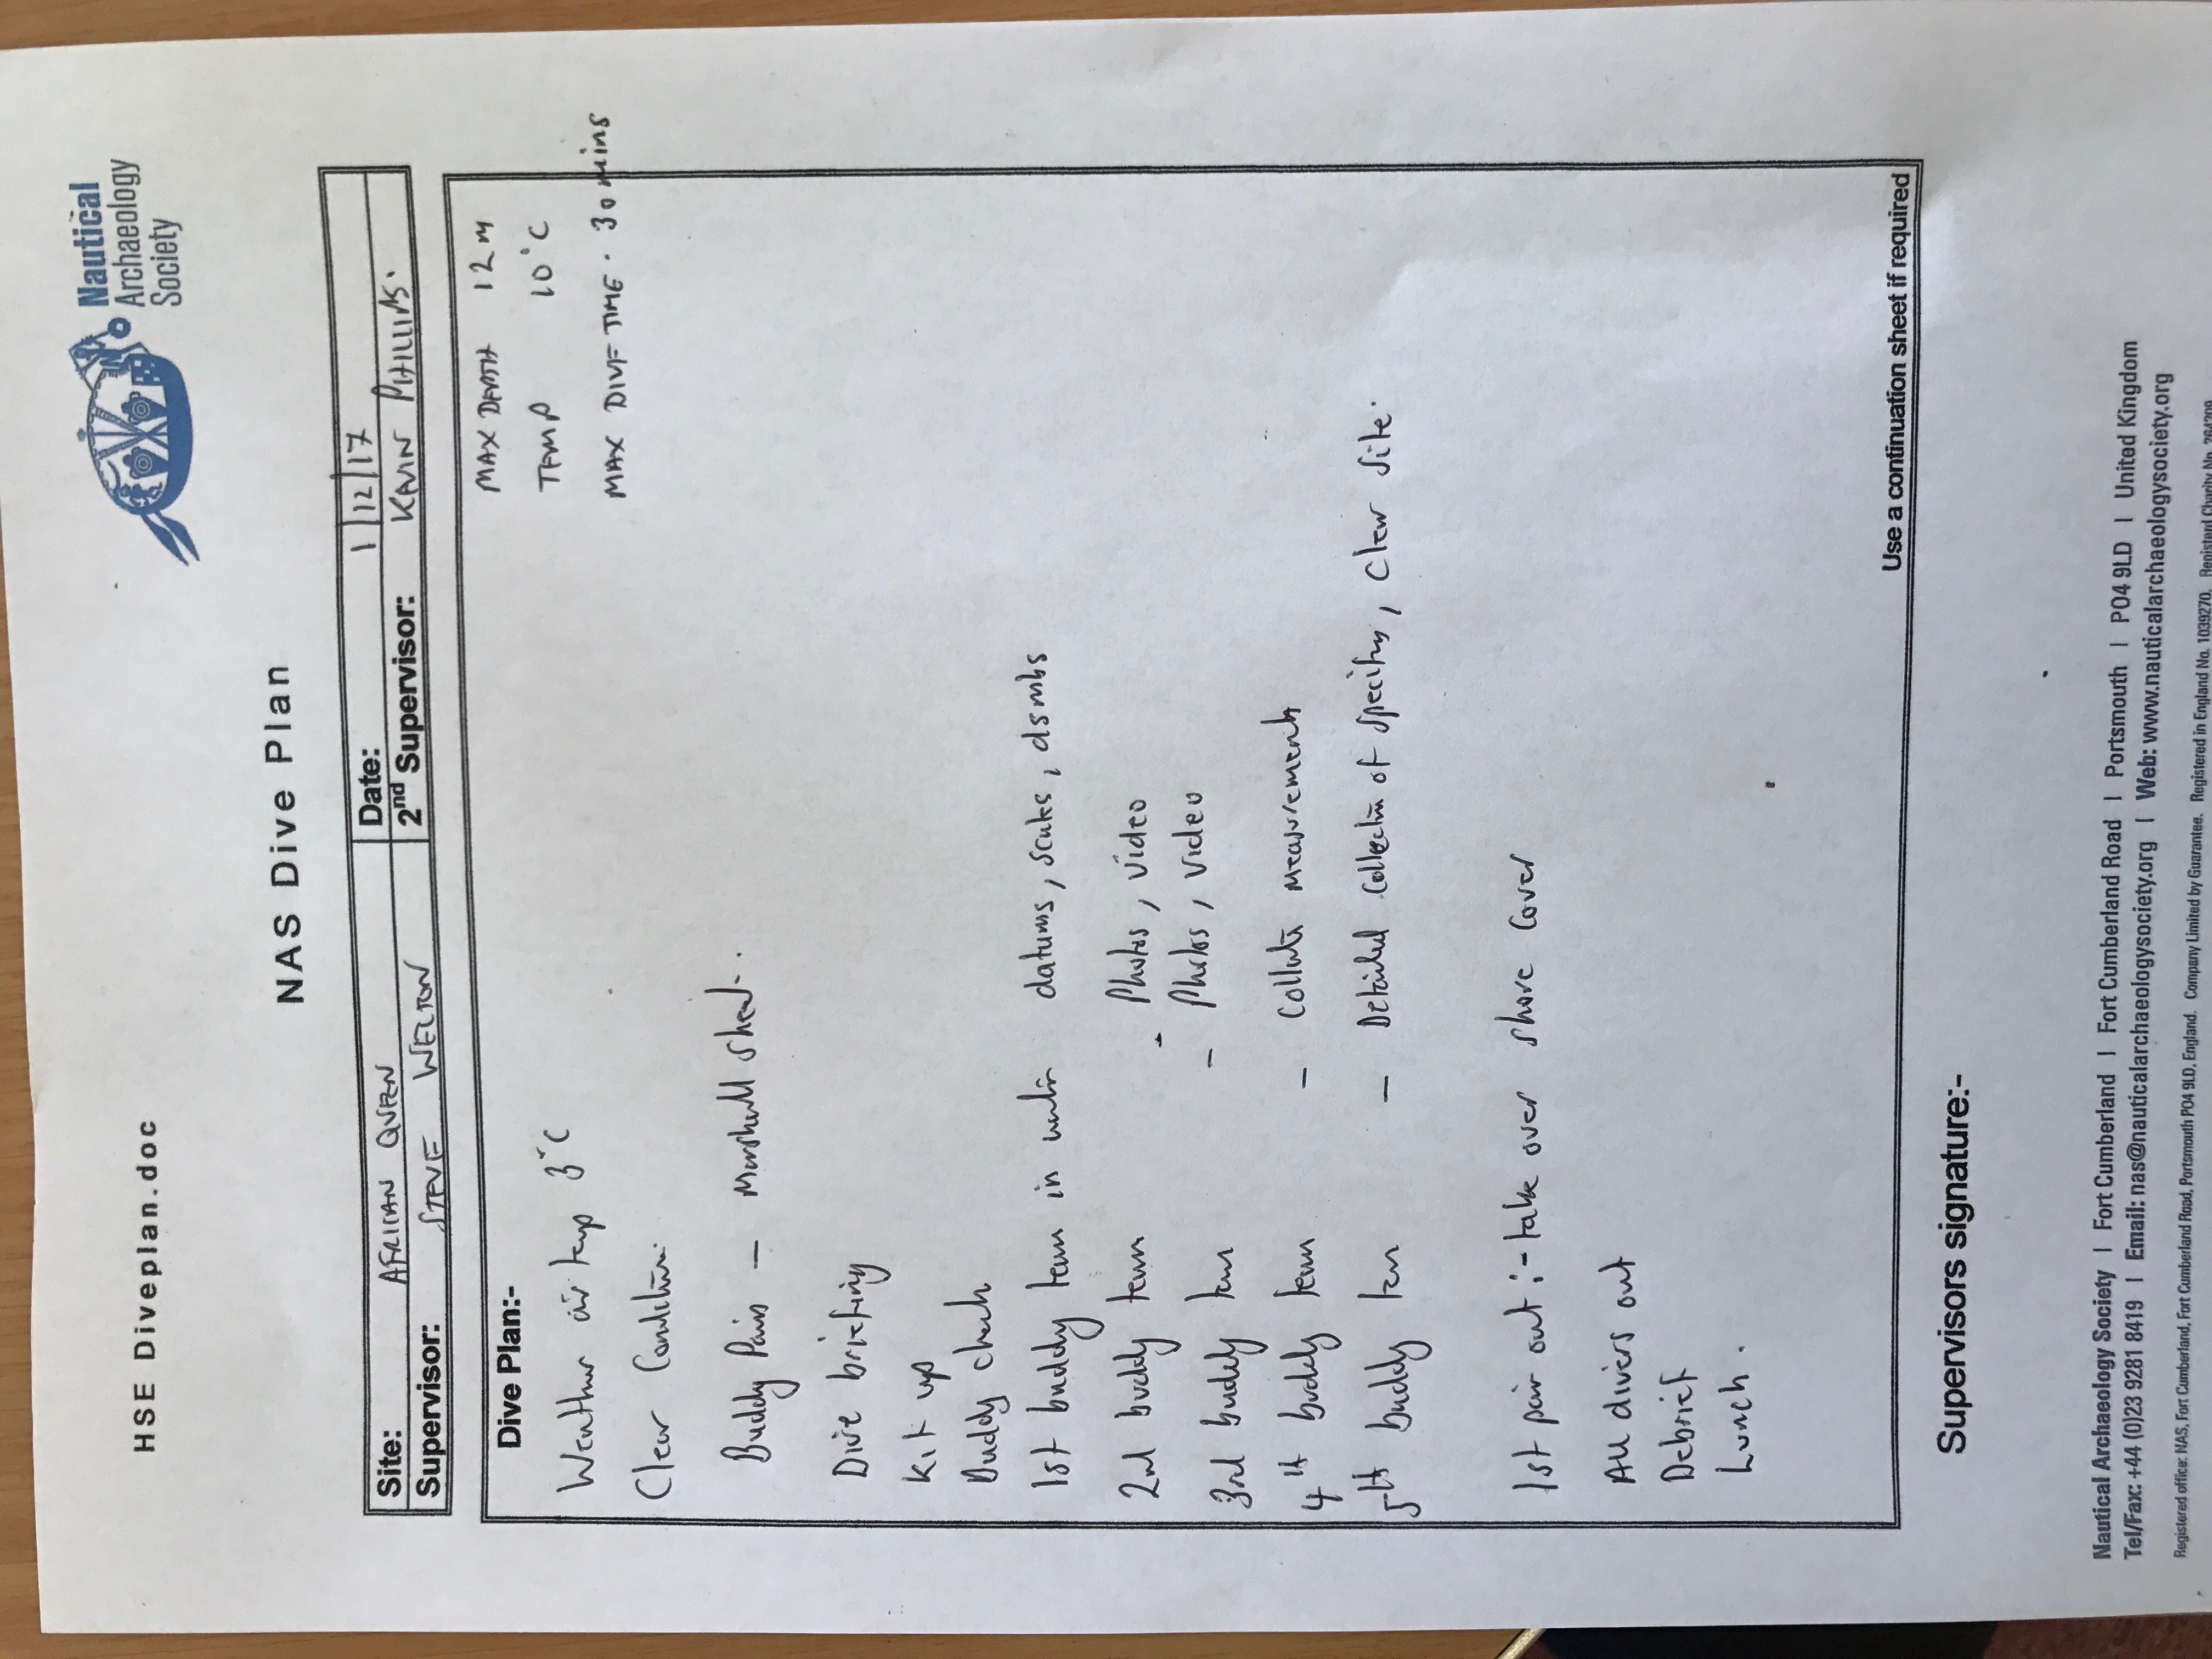 HSE Diveplan.doc
Nautical
Archaeology
Society
NAS Dive Plan
Site: AFRICAN QUEEN Date: 1/12/17
Supervisor: STEVE WELTON 2nd Supervisor: KEVIN PHILLIPS.
Dive Plan:-
MAX DEPTH 12M
Weather air temp 3°C TEMP 10°C
Clear Conditions. MAX DIVE TIME. 30 mins
Buddy Pairs — Marshall sheet.
Dive briefing
Kit up
Buddy check
1st buddy team in water datums, scales, dsmbs
2nd buddy team - Photos, video
3rd buddy team - Photos, video
4th buddy team - Collate measurements
5th buddy team - Detailed collection of specify, clear site.
1st pair out :- take over shore cover
All divers out
Debrief
Lunch.
Use a continuation sheet if required
Supervisors signature:-
Nautical Archaeology Society | Fort Cumberland | Fort Cumberland Road | Portsmouth | PO4 9LD | United Kingdom
Tel/Fax: +44 (0)23 9281 8419 | Email: nas@nauticalarchaeologysociety.org | Web: www.nauticalarchaeologysociety.org
Registered office: NAS, Fort Cumberland, Fort Cumberland Road, Portsmouth PO4 9LD, England. Company Limited by Guarantee. Registered in England No. 1039270. Registered Charity No.